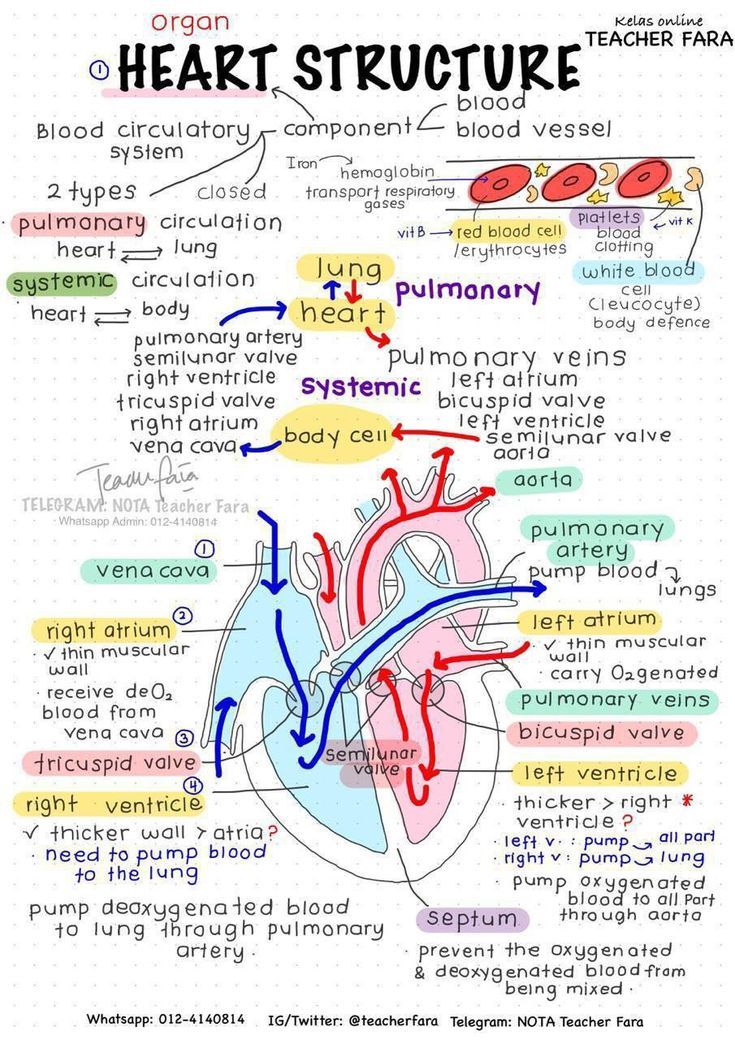 organ
Kelas online
TEACHER FARA
① HEART STRUCTURE
Blood circulatory
system
component
blood
blood vessel
2 types
closed
· pulmonary circulation
heart ⇌ lung
systemic circulation
· heart ⇌ body
Iron
hemoglobin
transport respiratory
gases
vit B → red blood cell
/erythrocytes
platlets
blood
clotting
vit K
white blood
cell
(leucocyte)
body defence
lung
heart
pulmonary
pulmonary artery
semilunar valve
right ventricle
tricuspid valve
right atrium
vena cava
systemic
body cell
pulmonary veins
left atrium
bicuspid valve
left ventricle
semilunar valve
aorta
Teacher Fara
TELEGRAM: NOTA Teacher Fara
Whatsapp Admin: 012-4140814
①
vena cava
②
right atrium
· ✓ thin muscular
wall
· receive deO₂
blood from
vena cava
③
tricuspid valve
④
right ventricle
✓ thicker wall > atria?
· need to pump blood
to the lung
pump deoxygenated blood
to lung through pulmonary
artery ·
semilunar
valve
aorta
pulmonary
artery
pump blood
lungs
left atrium
· ✓ thin muscular
wall
· carry O2genated
pulmonary veins
bicuspid valve
left ventricle
· thicker > right *
ventricle ?
· left v. : pump → all part
· right v : pump → lung
· pump oxygenated
blood to all Part
through aorta
septum
· prevent the oxygenated
& deoxygenated blood from
being mixed ·
Whatsapp: 012-4140814 IG/Twitter: @teacherfara Telegram: NOTA Teacher Fara